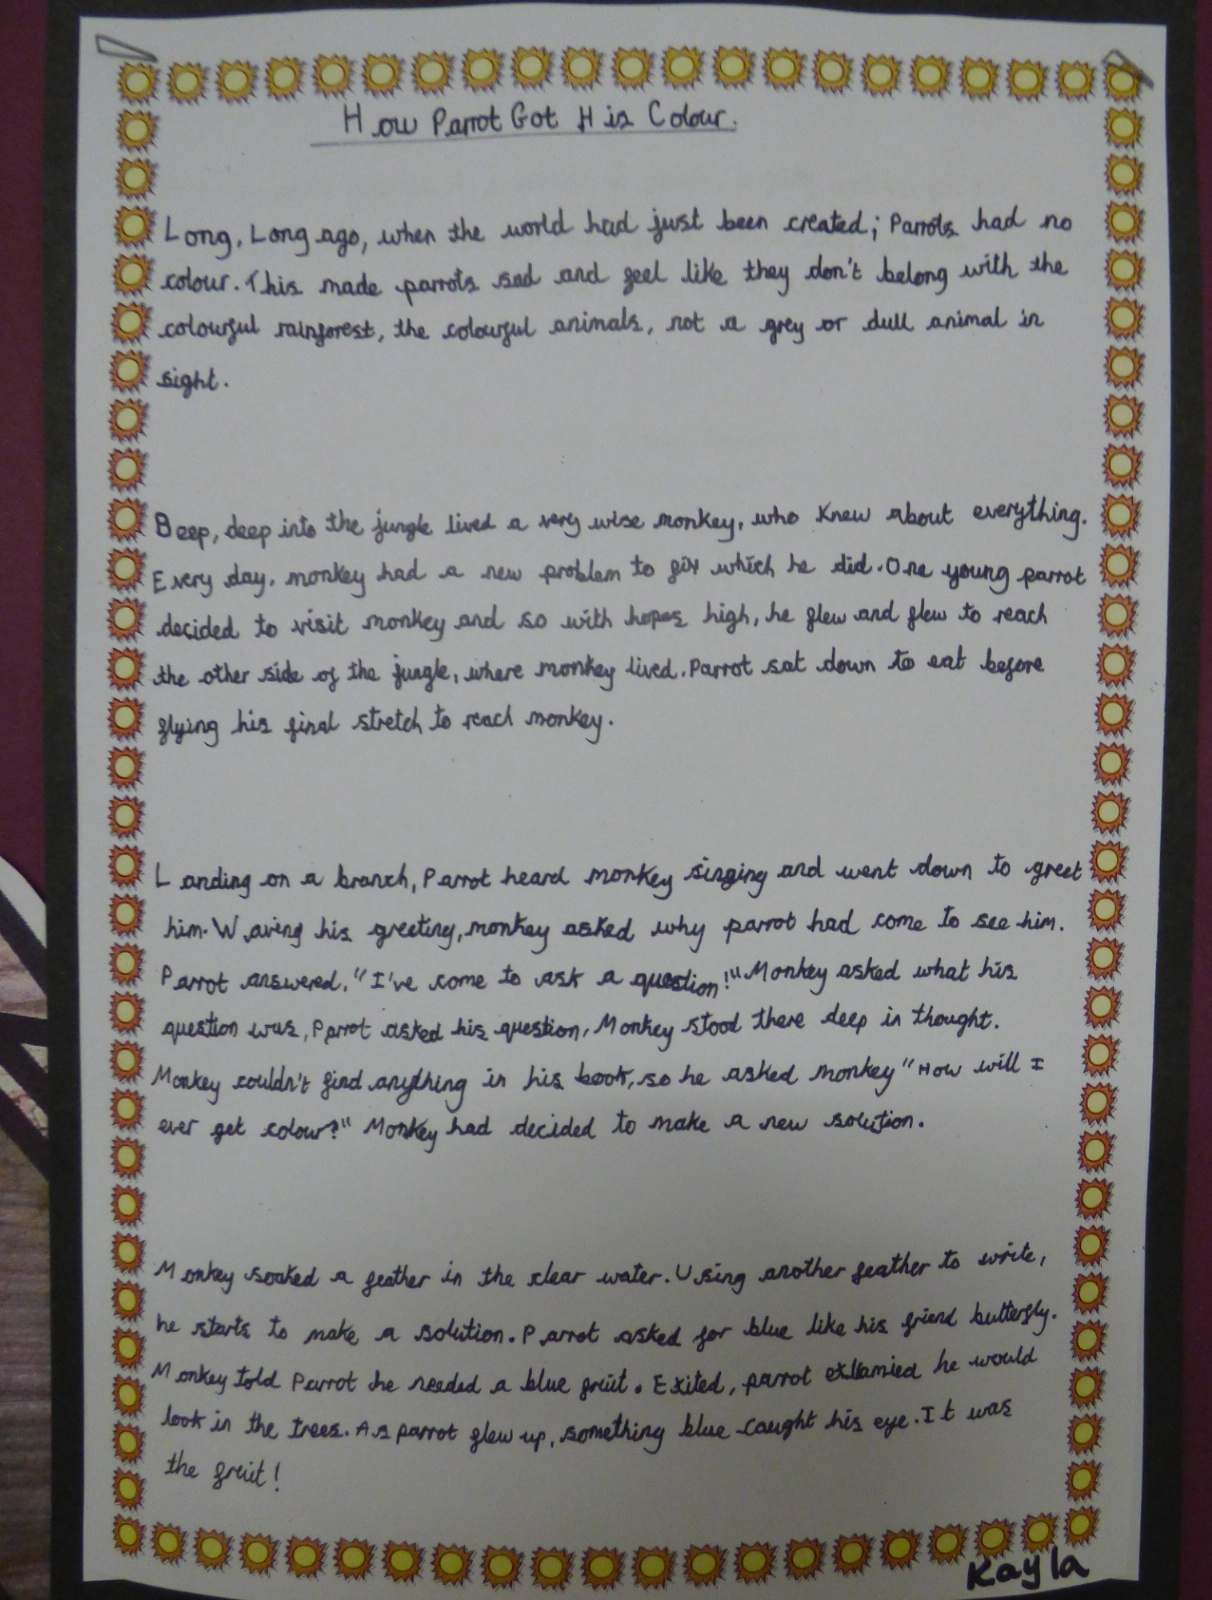 How Parrot Got His Colour.
Long, Long ago, when the world had just been created; Parrots had no
colour. This made parrots sad and feel like they don't belong with the
colourful rainforest, the colourful animals, not a grey or dull animal in
sight.
Beep, deep into the jungle lived a very wise monkey, who knew about everything.
Every day, monkey had a new problem to fix which he did. One young parrot
decided to visit monkey and so with hopes high, he flew and flew to reach
the other side of the jungle, where monkey lived. Parrot sat down to eat before
flying his final stretch to reach monkey.
Landing on a branch, Parrot heard monkey singing and went down to greet
him. Waving his greeting, monkey asked why parrot had come to see him.
Parrot answered, "I've come to ask a question!" Monkey asked what his
question was, Parrot asked his question, Monkey stood there deep in thought.
Monkey couldn't find anything in his book, so he asked monkey "How will I
ever get colour?" Monkey had decided to make a new solution.
Monkey soaked a feather in the clear water. Using another feather to write,
he starts to make a solution. Parrot asked for blue like his friend butterfly.
Monkey told Parrot he needed a blue fruit. Exited, parrot he would
look in the trees. As parrot flew up, something blue caught his eye. It was
the fruit!
Kayla